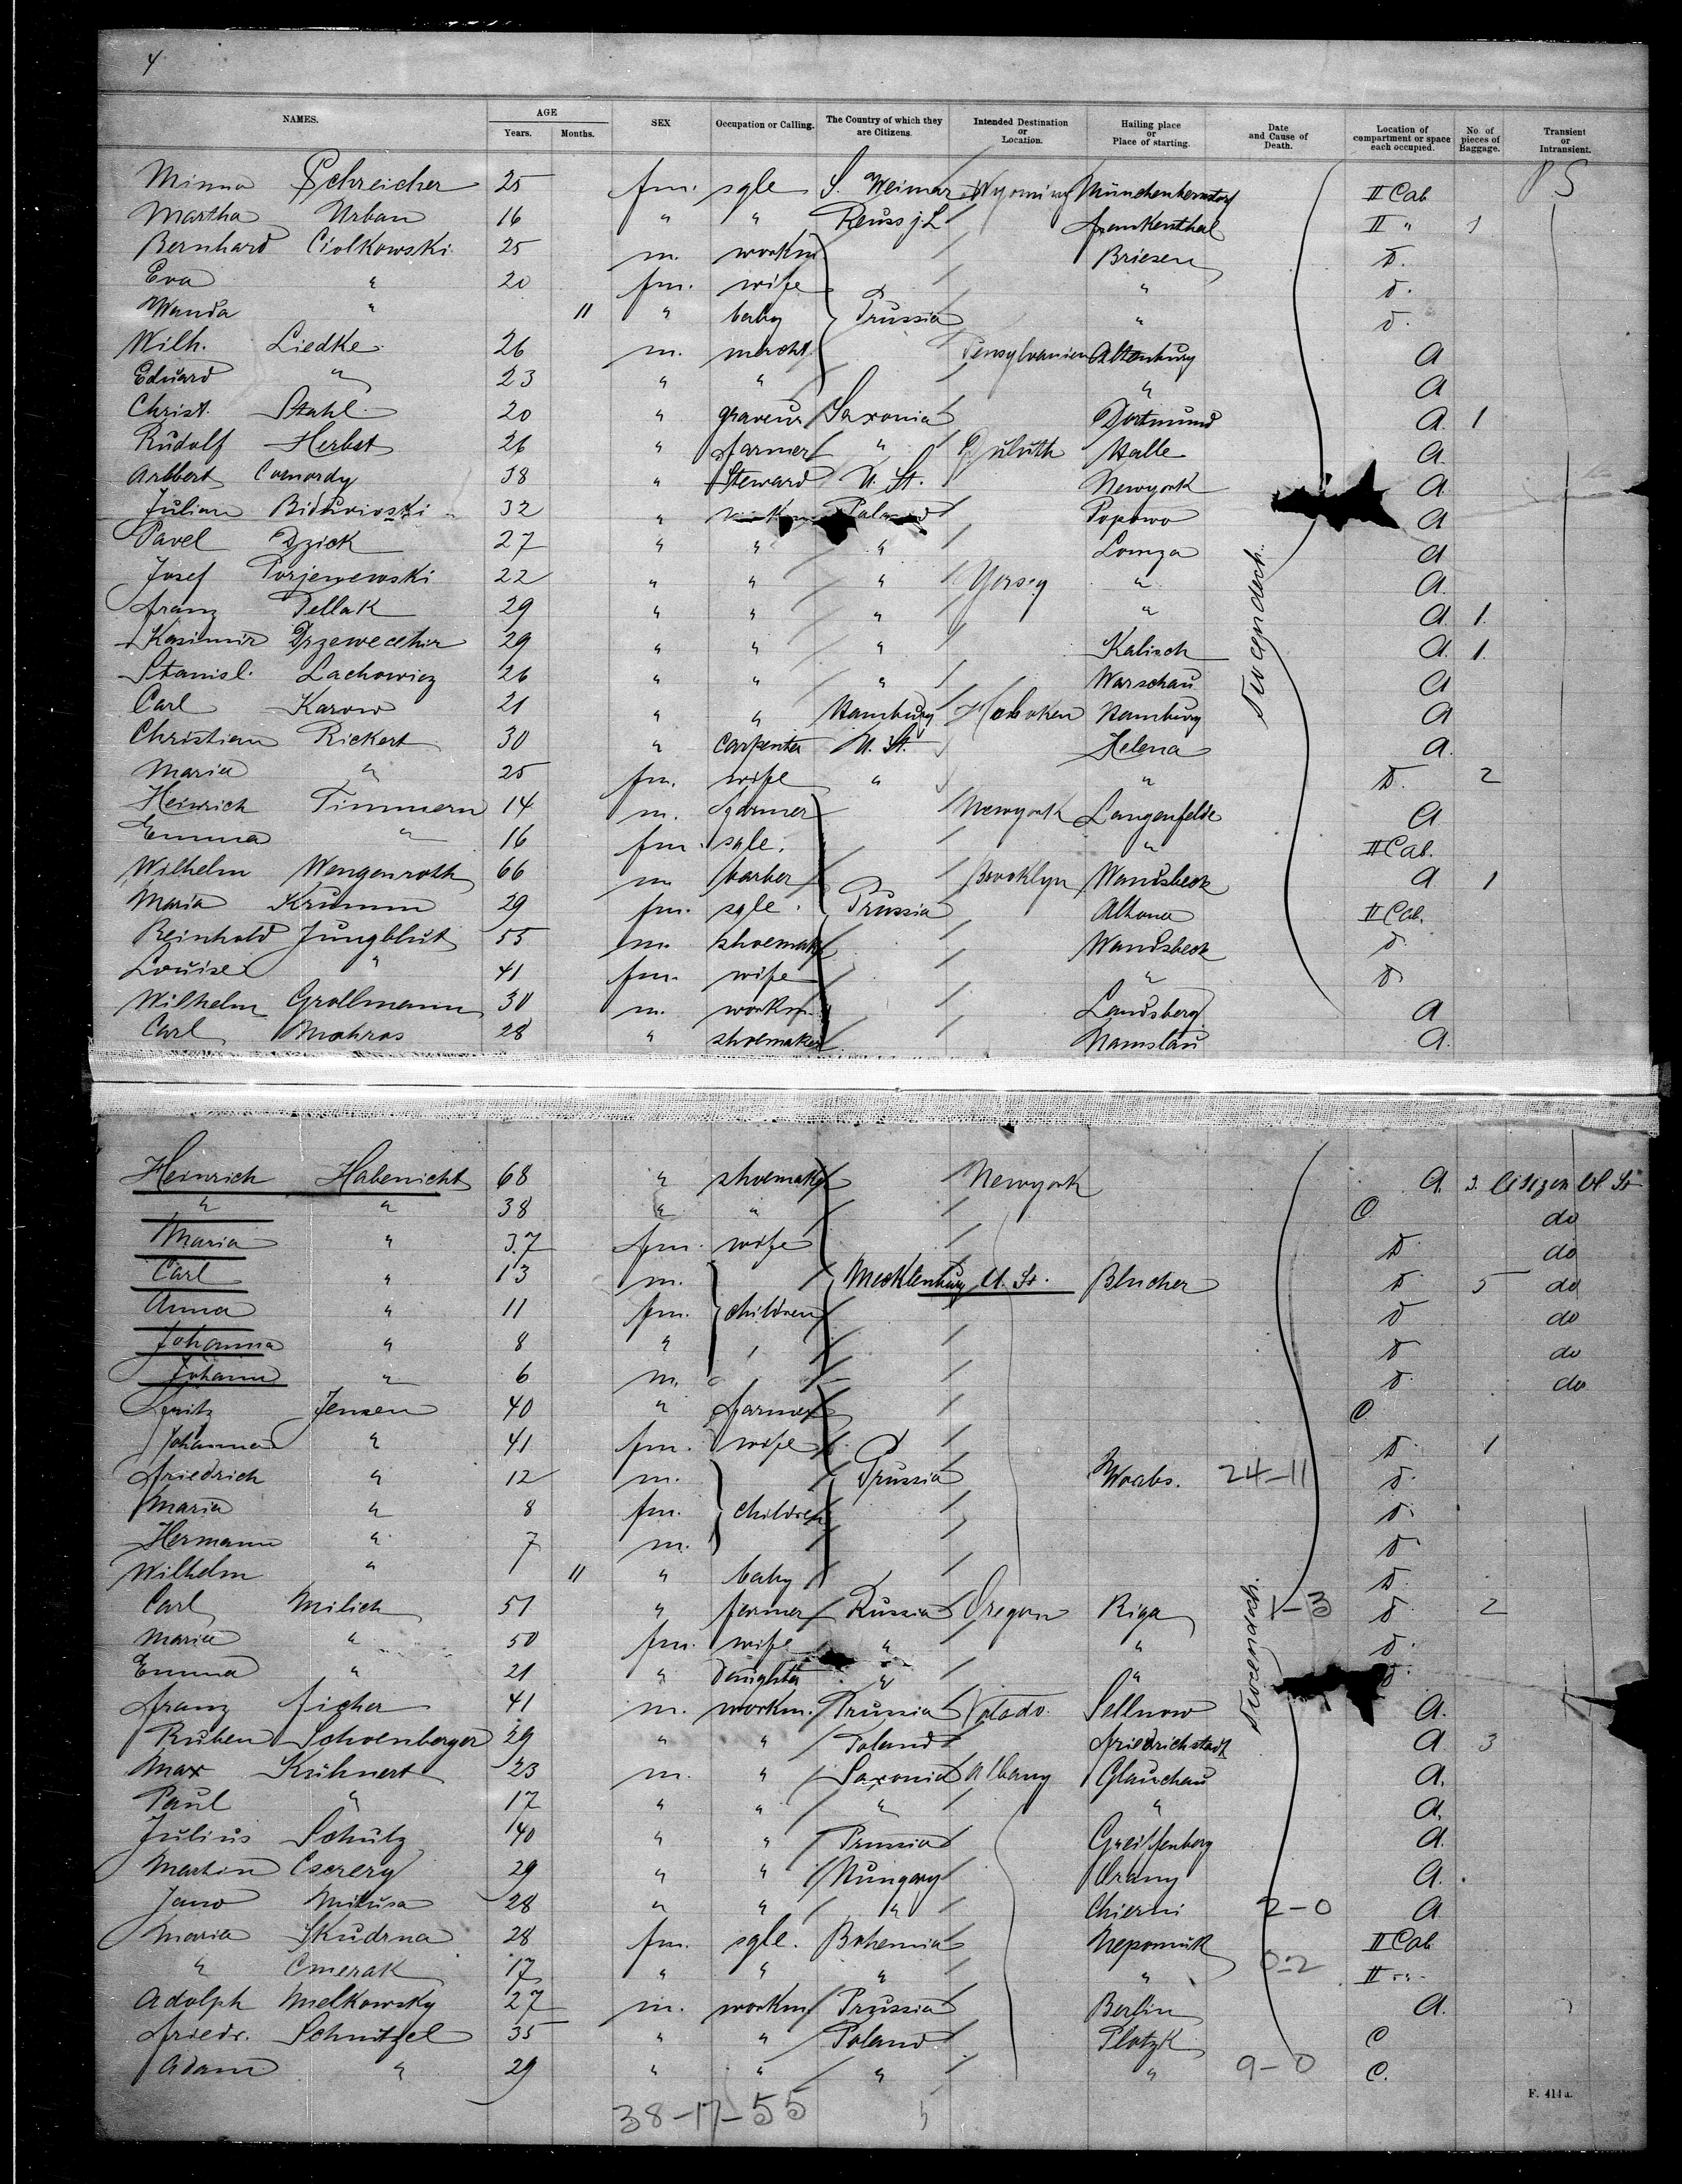 4
NAMES. AGE Years. Months. SEX Occupation or Calling. The Country of which they are Citizens. Intended Destination or Location. Hailing place or Place of starting. Date and Cause of Death. Location of compartment or space each occupied. No. of pieces of Baggage. Transient or Intransient.
Minna Schreicher 25 fm. sgle S. Weimar Wyoming Münchenbernsdorf II Cab
Martha Urban 16 " " Reuss j. L Frankenthal II " 1
Bernhard Ciolkowski 25 m. workm. Briesen D.
Eva " 20 fm. wife " D.
Wanda " 11 " baby Prussia " D.
Wilh. Liedke 26 m. mercht. Pensylvanien Altenburg A
Eduard " 23 " " " A
Christ. Stahl 20 " graveur Saxonia Dortmund A. 1
Rudolf Herbst 26 " farmer " Duluth Halle A
Comordy 38 " Steward U. St. Newyork A
Julian 32 " Poland Popowo A
Pavel Dzick 27 " " " Lomza A
Josef Porjewewski 22 " " " Yersey " A.
Franz Pellak 29 " " " " A. 1.
Kasimir 29 " " " Kalisch A. 1.
Stanisl. Lachowicz 26 " " " Warschau A
Carl Karow 21 " " Hamburg Hoboken Hamburg A
Christian Rickert 30 " carpenter U. St. Helena A.
Maria " 25 fm. wife " " D. 2
Heinrich Timmern 14 m. farmer Newyork Langenfelde A
Emma " 16 fm. sgle. " II Cab.
Wilhelm Wengenroth 66 m. barber Brooklyn Wandsbeck A 1
Maria Krumm 29 fm. sgle. Prussia Altona II Cab.
Reinhold Jungblut 55 m. shoemak. Wandsbeck D
Louise " 41 fm. wife " D
Wilhelm Grollmann 30 m. workm. Landsberg A
Carl Mohras 28 " shoemaker Namslau A.
Heinrich Habenicht 68 " shoemak. Newyork A. 3. Citizen U. St
" " 38 " " O do
Maria " 37 fm. wife D do
Carl " 13 m. Mecklenburg U. St. Blucher D. 5 do
Anna " 11 fm. children D do
Johanna " 8 " D do
Johann " 6 m. D do
Fritz Jensen 40 " farmer O
Johanna " 41 fm. wife D. 1
Friedrich " 12 m. Prussia Woabs. 24-11 D.
Maria " 8 fm. children D.
Hermann " 7 m. D
Wilhelm " 11 " baby D.
Carl Milich 51 " farmer Russia Oregon Riga 1-3 D 2
Maria " 50 fm. wife " " D.
Emma " 21 " Daughter " " D.
Franz Ficher 41 m. workm. Prussia Sellnow A.
Ruben Schoenberger 29 " " Poland Friedrichstadt A 3
Max Kühnert 23 m. " Saxonia Albany Glauchau A.
Paul " 17 " " " " A.
Julius Schulz 40 " " Prussia Greiffenberg A.
Martin 29 " " Hungary Arany A.
Jano Milusa 28 " " " Chierni 2-0 A
Maria Skudrna 28 fm. sgle. Bohemia Nepomuk II Cab
" Cmerak 17 " " " " 0-2 II "
Adolph Mielkowsky 27 m. workm. Prussia Berlin A.
Friedr. Schnitzel 35 " " Poland Plotzk C
Adam " 29 " " " " 9-0 C.
38-17-55
F. 411a.